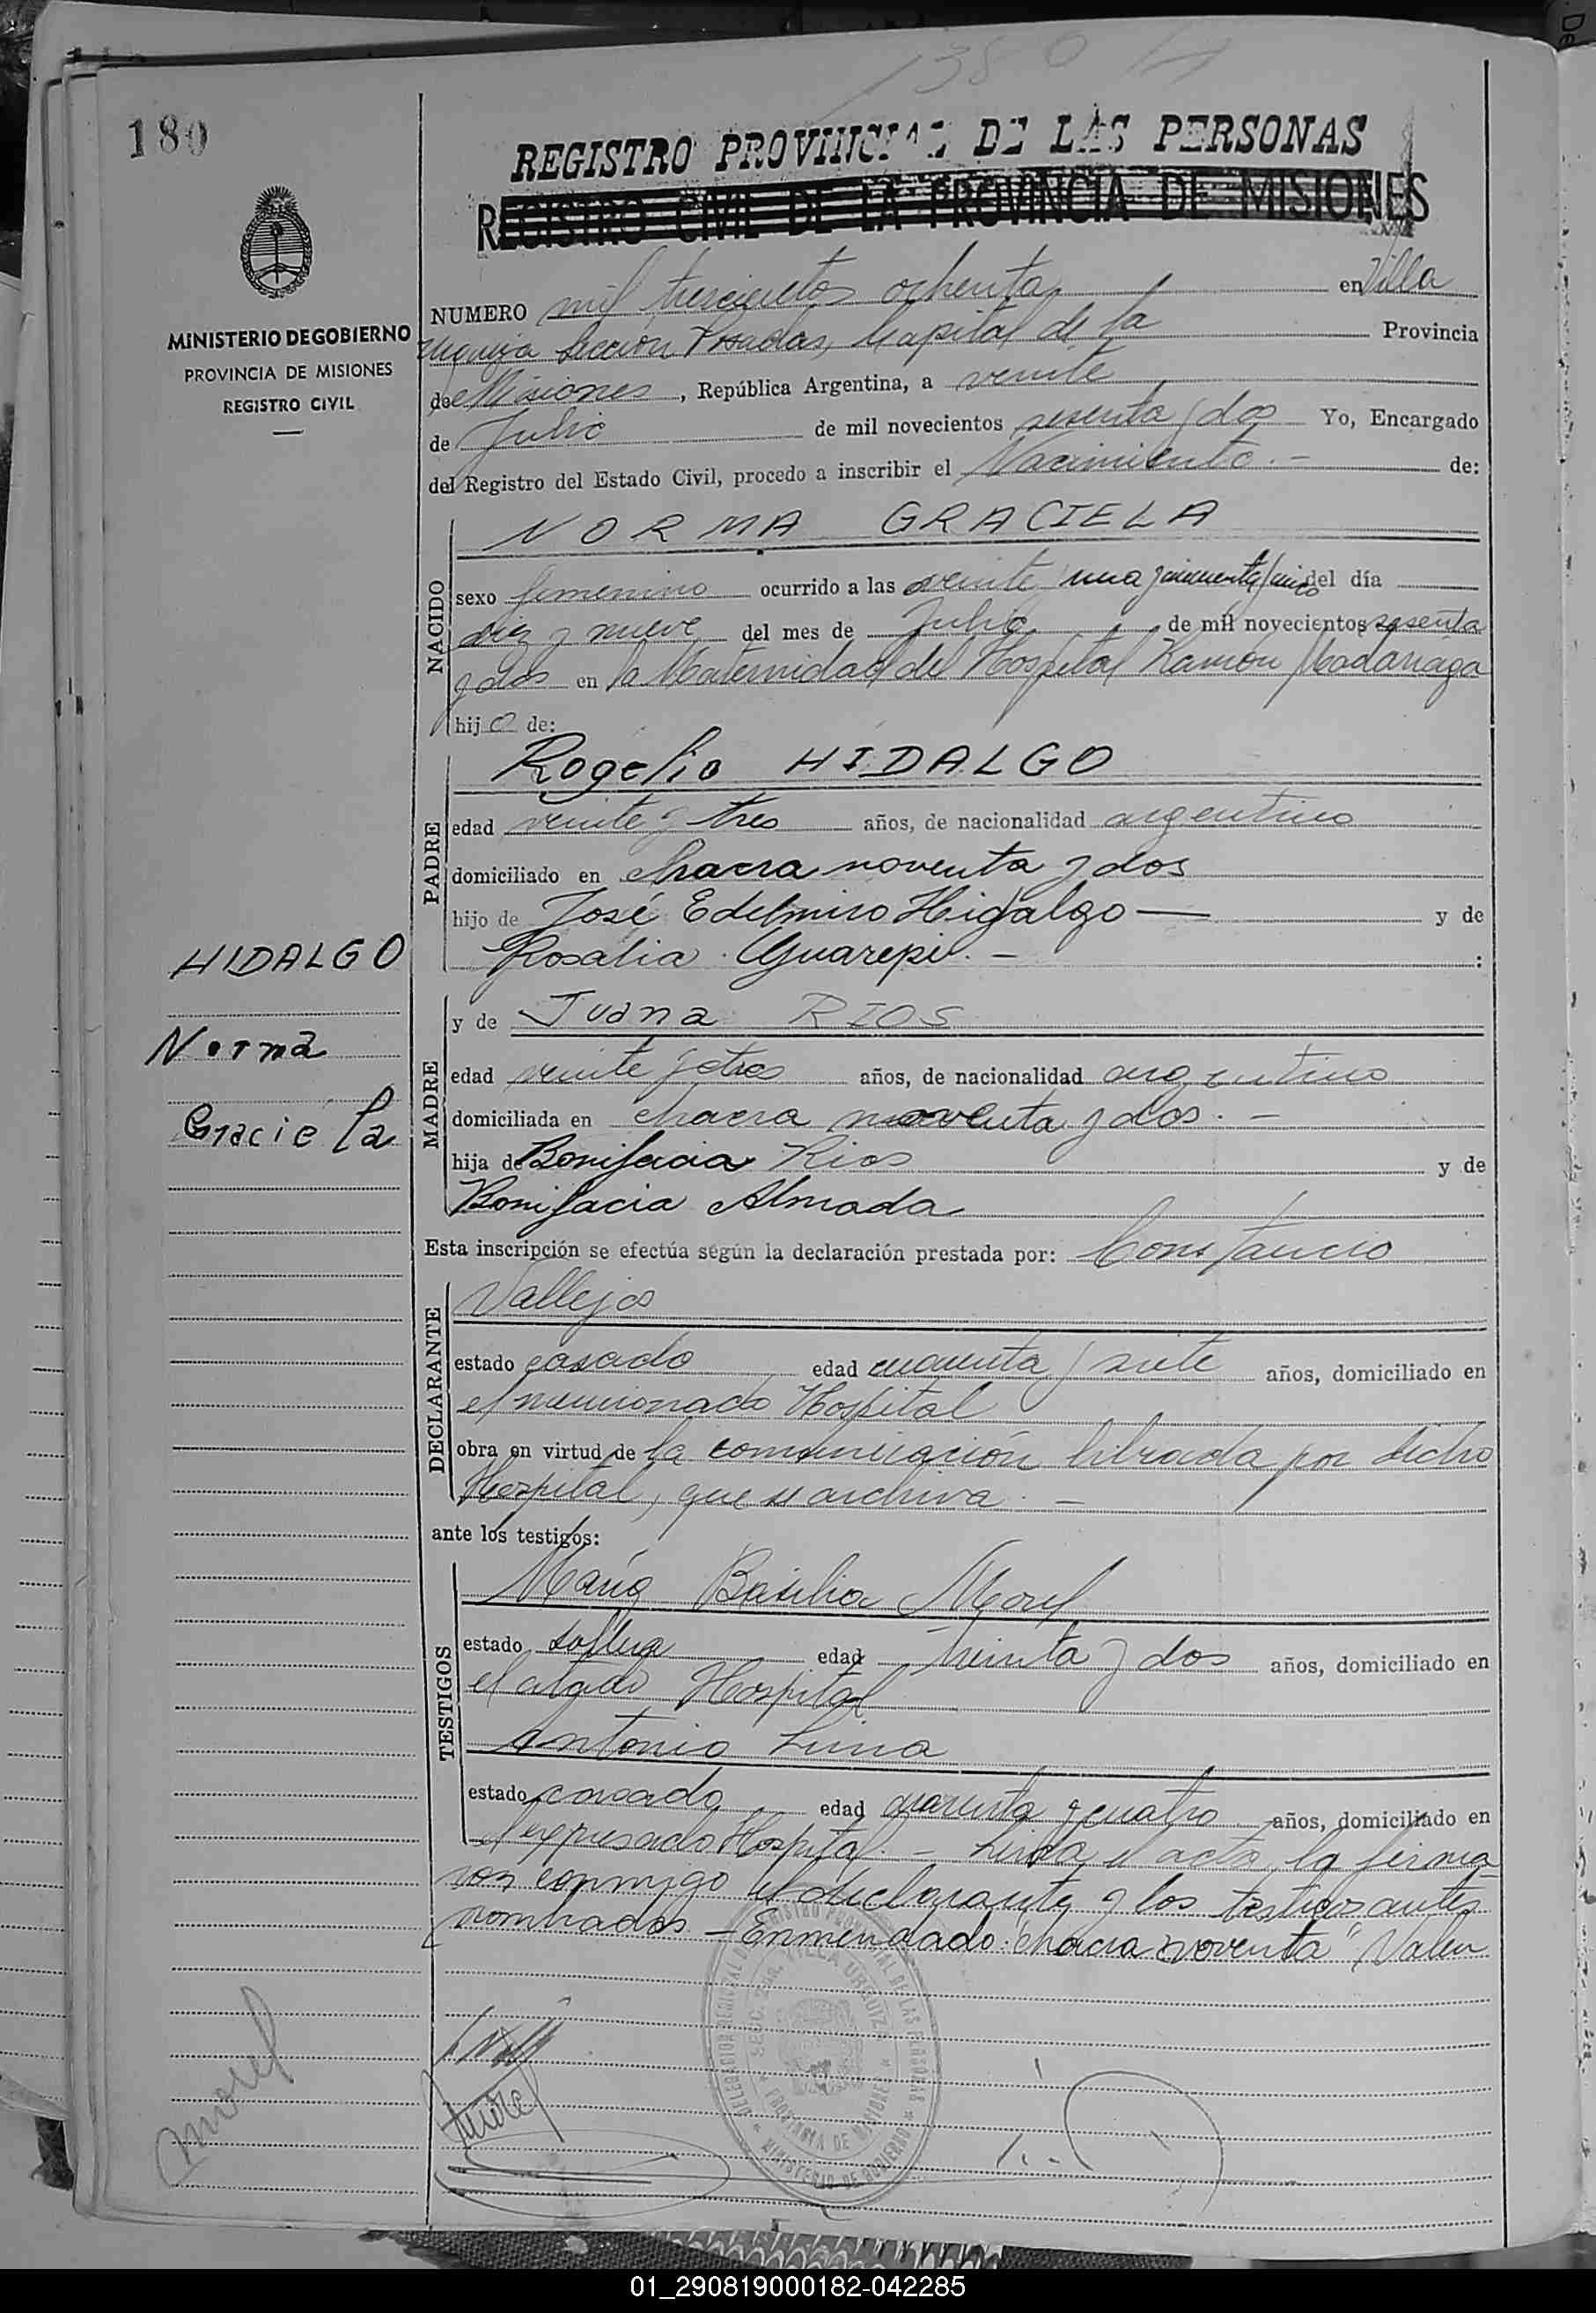 1380
180
REGISTRO PROVINCIAL DE LAS PERSONAS
REGISTRO CIVIL DE LA PROVINCIA DE MISIONES
MINISTERIO DE GOBIERNO
PROVINCIA DE MISIONES
REGISTRO CIVIL
NUMERO mil trescientos ochenta en Villa
Urquiza Sección Posadas, Capital de la Provincia
de Misiones, República Argentina, a veinte
de Julio de mil novecientos sesenta y dos Yo, Encargado
del Registro del Estado Civil, procedo a inscribir el Nacimiento.- de:
NACIDO
NORMA GRACIELA
sexo femenino ocurrido a las veinte una y cincuenta y cinco del día
diez y nueve del mes de Julio de mil novecientos sesenta
y dos en la Maternidad del Hospital Ramón Madariaga
hija de:
PADRE
Rogelio HIDALGO
edad veinte y tres años, de nacionalidad argentino
domiciliado en chacra noventa y dos
hijo de José Edelmiro Hidalgo — y de
Rosalia Yguarepi. - :
HIDALGO
Norma
Graciela
MADRE
y de Juana RIOS
edad veinte y tres años, de nacionalidad argentino
domiciliada en chacra noventa y dos. -
hija de Bonifacia Rios y de
Bonifacia Almada
Esta inscripción se efectúa según la declaración prestada por: Constancio
DECLARANTE
Vallejos
estado casado edad cuarenta y siete años, domiciliado en
el mencionado Hospital
obra en virtud de la comunicación librada por dicho
Hospital, que se archiva. -
ante los testigos:
TESTIGOS
María Basilia Morel
estado soltera edad treinta y dos años, domiciliado en
el citado Hospital
Antonio Luna
estado casado edad cuarenta y cuatro años, domiciliado en
el expresado Hospital. - Leida el acta, la firma
ron conmigo el declarante y los testigos antes
nombrados - Enmendado: "chacra noventa" Valen
DELEGACION REGIONAL DEL REGISTRO PROVINCIAL DE LAS PERSONAS
SECC. 2da. VILLA URQUIZA
PROVINCIA DE MISIONES
MINISTERIO DE GOBIERNO
Morel
Morel
01_290819000182-042285